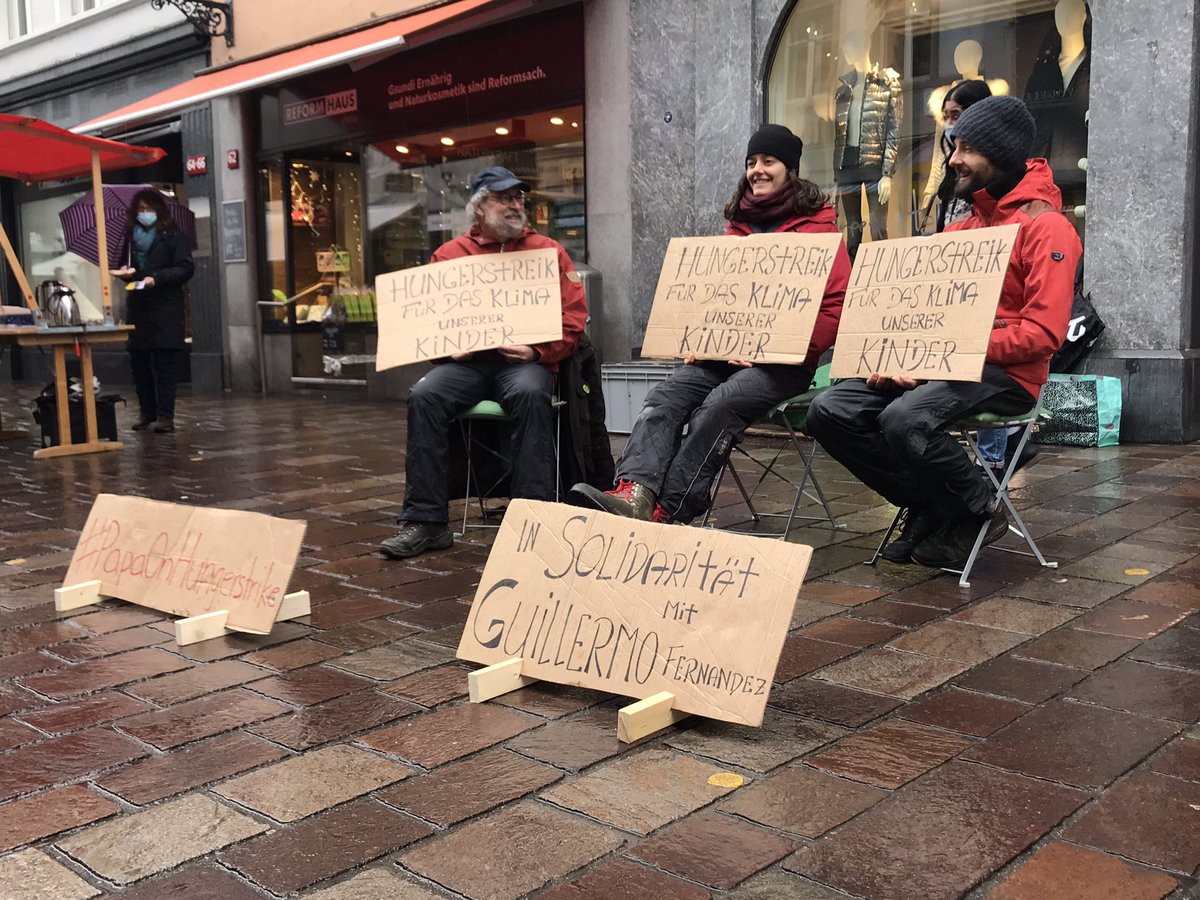 Gsundi Ernährig
und Naturkosmetik sind Reformsach.
REFORMHAUS
64-66
62
HUNGERSTREIK
FÜR DAS KLIMA
UNSERER
KINDER
HUNGERSTREIK
FÜR DAS KLIMA
UNSERER
KINDER
HUNGERSTREIK
FÜR DAS KLIMA
UNSERER
KINDER
#PapaOnHungerstrike
IN SOLIDARITÄT
MIT
GUILLERMO
FERNANDEZ